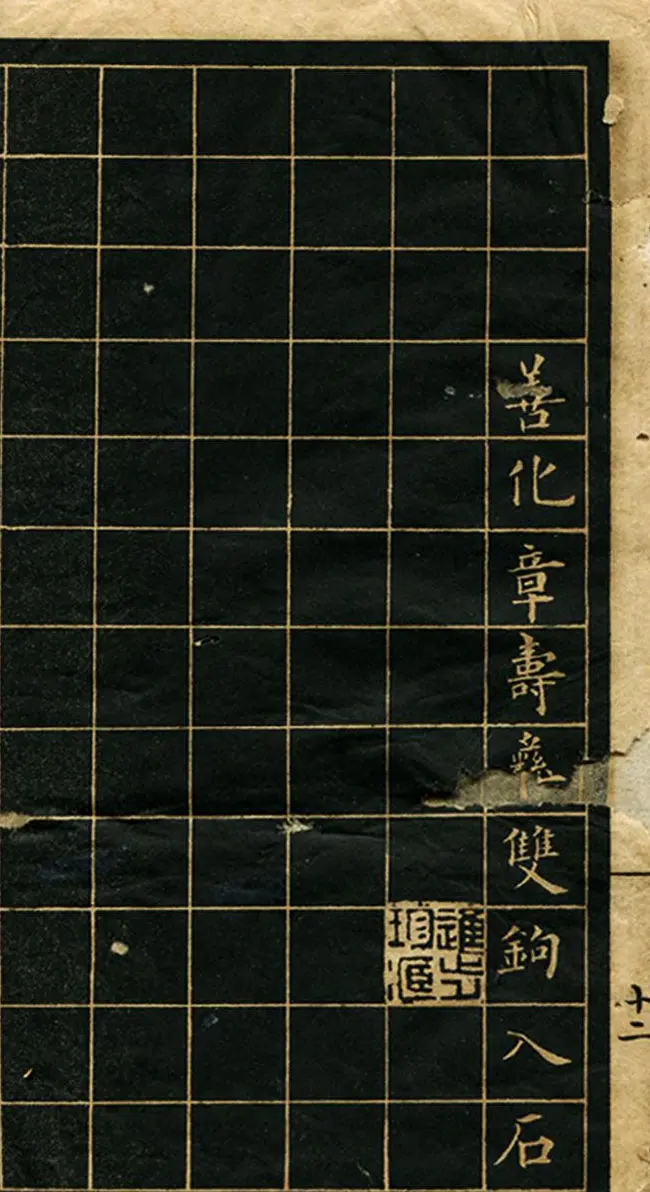 善化章壽彝雙鉤入石
十二